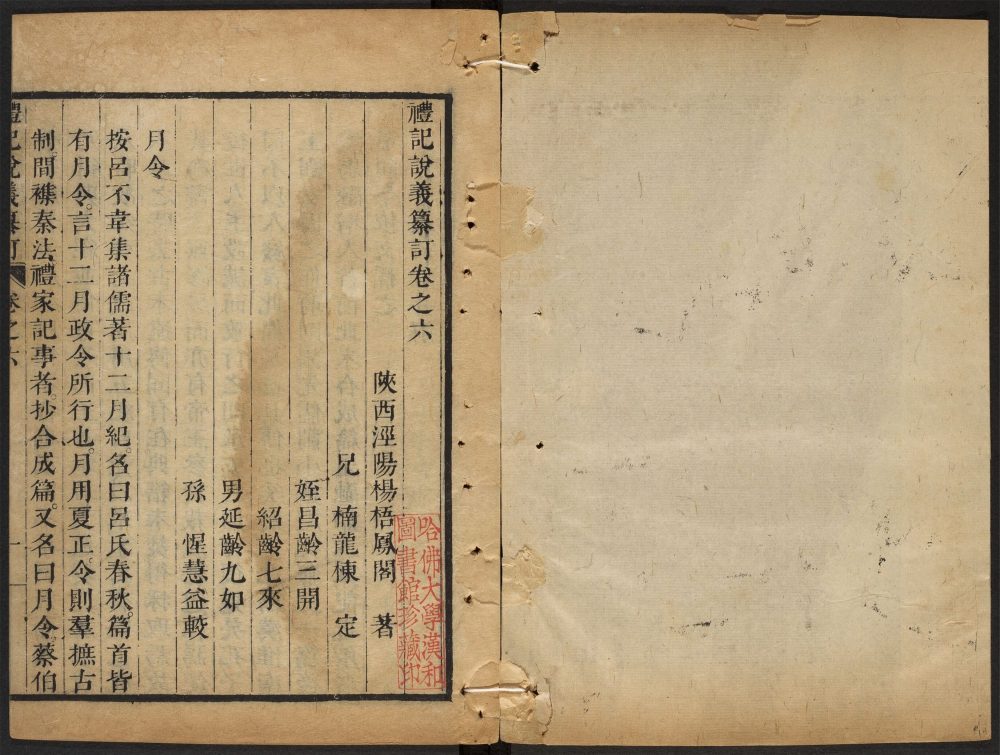 禮記說義纂訂卷之六
陝西涇陽楊梧鳳閣 著
兄楠龍棟 定
姪昌齡三開
紹齡七來
男延齡九如
孫 惺慧益較
月令
按呂不韋集諸儒著十二月紀名曰呂氏春秋篇首皆
有月令言十二月政令所行也月用夏正令則羣摭古
制間襍秦法禮家記事者抄合成篇又名曰月令蔡伯
禮記說義纂訂 卷之六 一
哈佛大學漢和
圖書館珍藏印